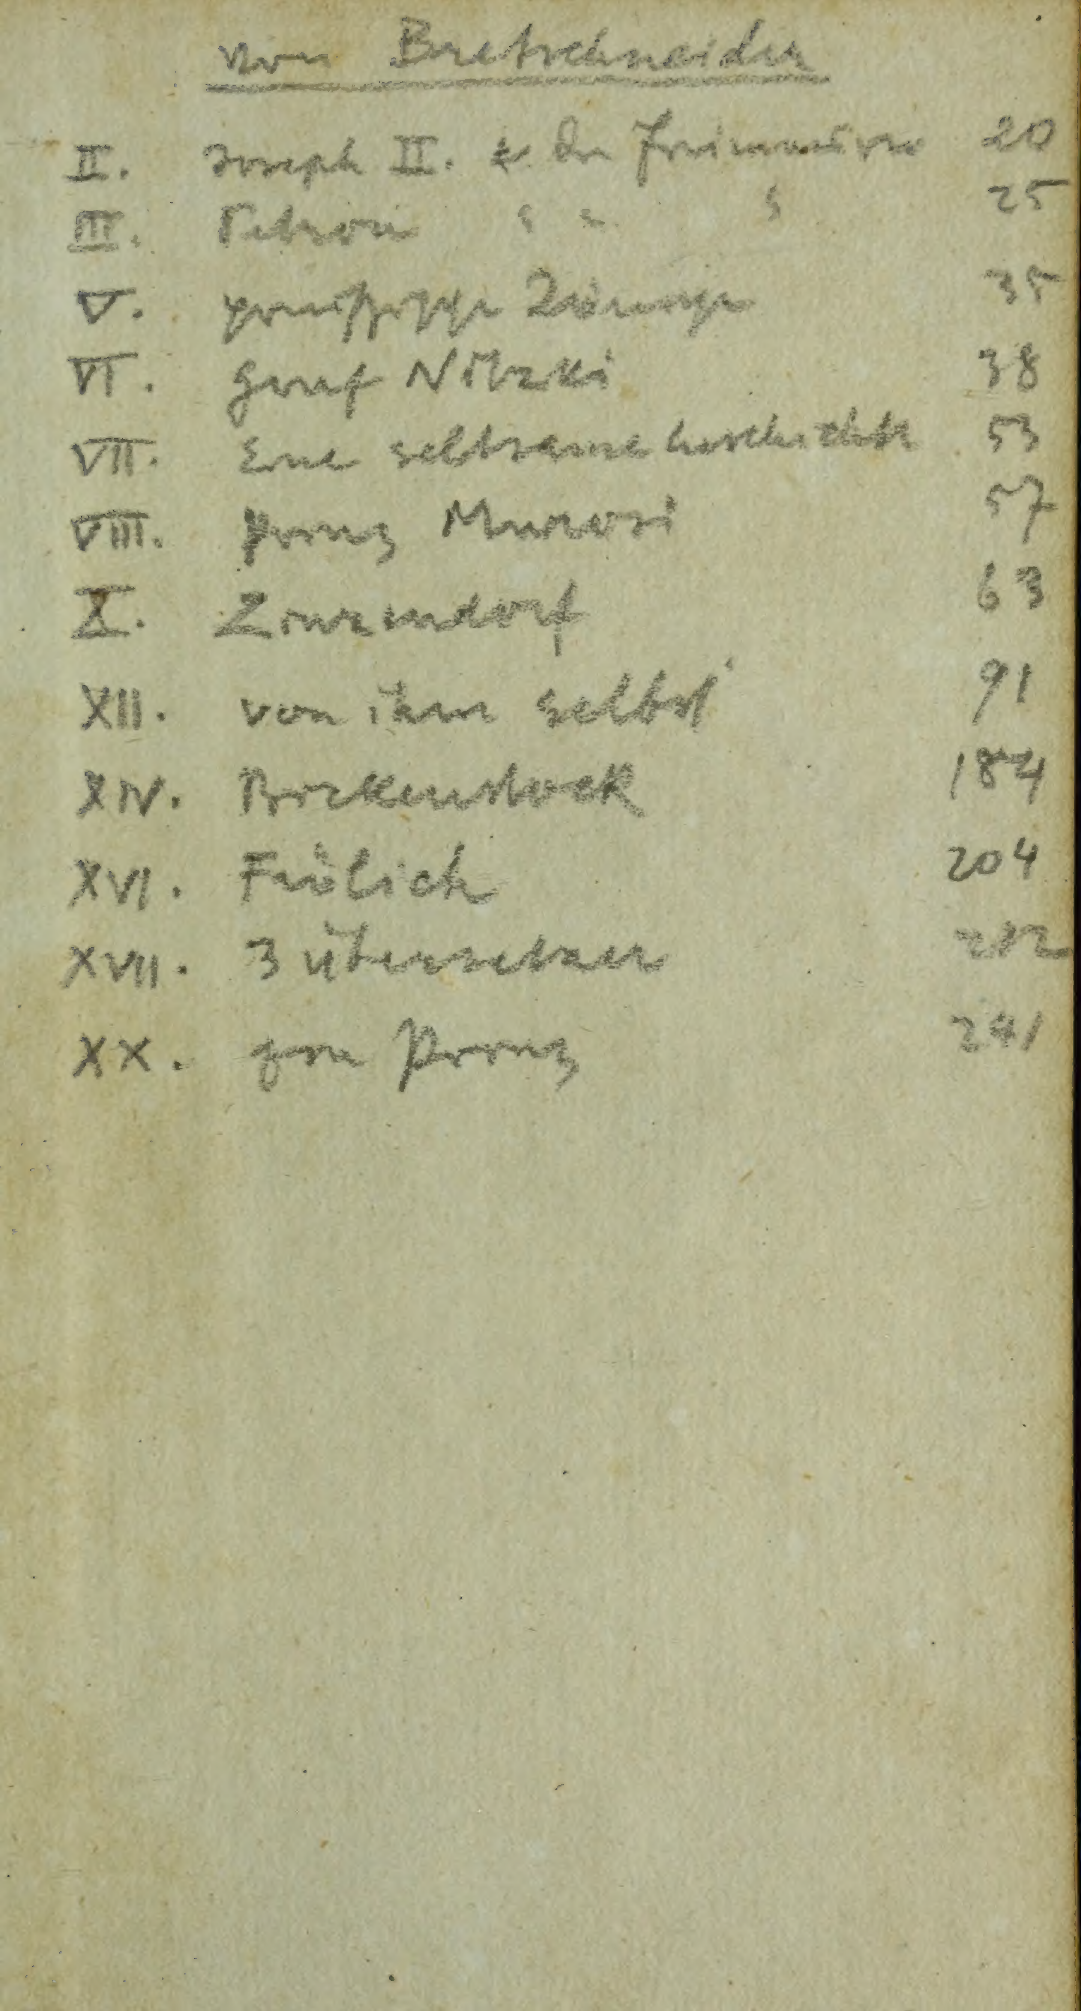 von Bretschneider
II. Joseph II. & die Freimaurer 20
III. " " " 25
V. 35
VI. Graf Nitzki 38
VII. Eine seltsame Geschichte 53
VIII. Prinz Murusi 57
X. Zinzendorf 63
XII. von ihm selbst 91
XIV. Birkenstock 184
XVI. Frölich 204
XVII. 3 Übersetzer 212
XX. Prinz 241